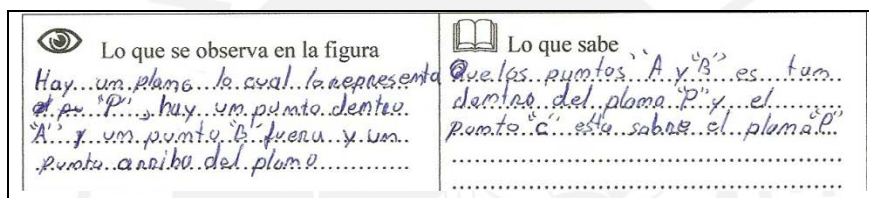 Lo que se observa en la figura
Hay un plano lo cual lo representa
el pu "P", hay un punto dentro
"A" y un punto "B" fuera y un
punto arriba del plano
Lo que sabe
Que los puntos "A y "B" es tan
dentro del plano "P" y el
punto "c" esta sobre el plano "P"